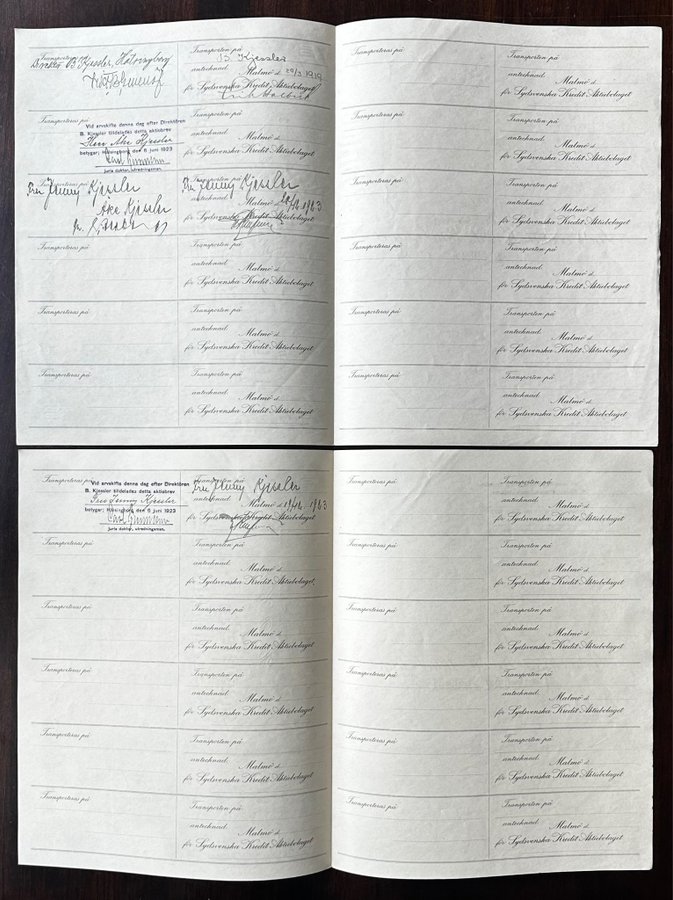 Transporteras på
Direktör B Kjessler, Helsingborg
Transporten på
B Kjessler
antecknad.
Malmö d. 20/3 1919
för Sydsvenska Kredit Aktiebolaget
Transporteras på
Vid arvskifte denna dag efter Direktören
B. Kjessler tilldelades detta aktiebrev
Herr Åke Kjessler
betygar; Hälsingborg den 5 juni 1923
Juris doktor, utredningsman.
Transporten på
antecknad.
Malmö d.
för Sydsvenska Kredit Aktiebolaget
Transporteras på
Fru Jenny Kjessler
Åke Kjessler
Transporten på
Fru Jenny Kjessler
antecknad.
Malmö d. 1963
för Sydsvenska Kredit Aktiebolaget
Transporteras på
Transporten på
antecknad.
Malmö d.
för Sydsvenska Kredit Aktiebolaget
Transporteras på
Transporten på
antecknad.
Malmö d.
för Sydsvenska Kredit Aktiebolaget
Transporteras på
Transporten på
antecknad.
Malmö d.
för Sydsvenska Kredit Aktiebolaget
Transporteras på
Transporten på
antecknad.
Malmö d.
för Sydsvenska Kredit Aktiebolaget
Transporteras på
Transporten på
antecknad.
Malmö d.
för Sydsvenska Kredit Aktiebolaget
Transporteras på
Transporten på
antecknad.
Malmö d.
för Sydsvenska Kredit Aktiebolaget
Transporteras på
Transporten på
antecknad.
Malmö d.
för Sydsvenska Kredit Aktiebolaget
Transporteras på
Transporten på
antecknad.
Malmö d.
för Sydsvenska Kredit Aktiebolaget
Transporteras på
Transporten på
antecknad.
Malmö d.
för Sydsvenska Kredit Aktiebolaget
Transporteras på
Vid arvskifte denna dag efter Direktören
B. Kjessler tilldelades detta aktiebrev
Fru Jenny Kjessler
betygar; Hälsingborg den 5 juni 1923
Juris doktor, utredningsman.
Transporten på
Fru Jenny Kjessler
antecknad.
Malmö d. 1963
för Sydsvenska Kredit Aktiebolaget
Transporteras på
Transporten på
antecknad.
Malmö d.
för Sydsvenska Kredit Aktiebolaget
Transporteras på
Transporten på
antecknad.
Malmö d.
för Sydsvenska Kredit Aktiebolaget
Transporteras på
Transporten på
antecknad.
Malmö d.
för Sydsvenska Kredit Aktiebolaget
Transporteras på
Transporten på
antecknad.
Malmö d.
för Sydsvenska Kredit Aktiebolaget
Transporteras på
Transporten på
antecknad.
Malmö d.
för Sydsvenska Kredit Aktiebolaget
Transporteras på
Transporten på
antecknad.
Malmö d.
för Sydsvenska Kredit Aktiebolaget
Transporteras på
Transporten på
antecknad.
Malmö d.
för Sydsvenska Kredit Aktiebolaget
Transporteras på
Transporten på
antecknad.
Malmö d.
för Sydsvenska Kredit Aktiebolaget
Transporteras på
Transporten på
antecknad.
Malmö d.
för Sydsvenska Kredit Aktiebolaget
Transporteras på
Transporten på
antecknad.
Malmö d.
för Sydsvenska Kredit Aktiebolaget
Transporteras på
Transporten på
antecknad.
Malmö d.
för Sydsvenska Kredit Aktiebolaget